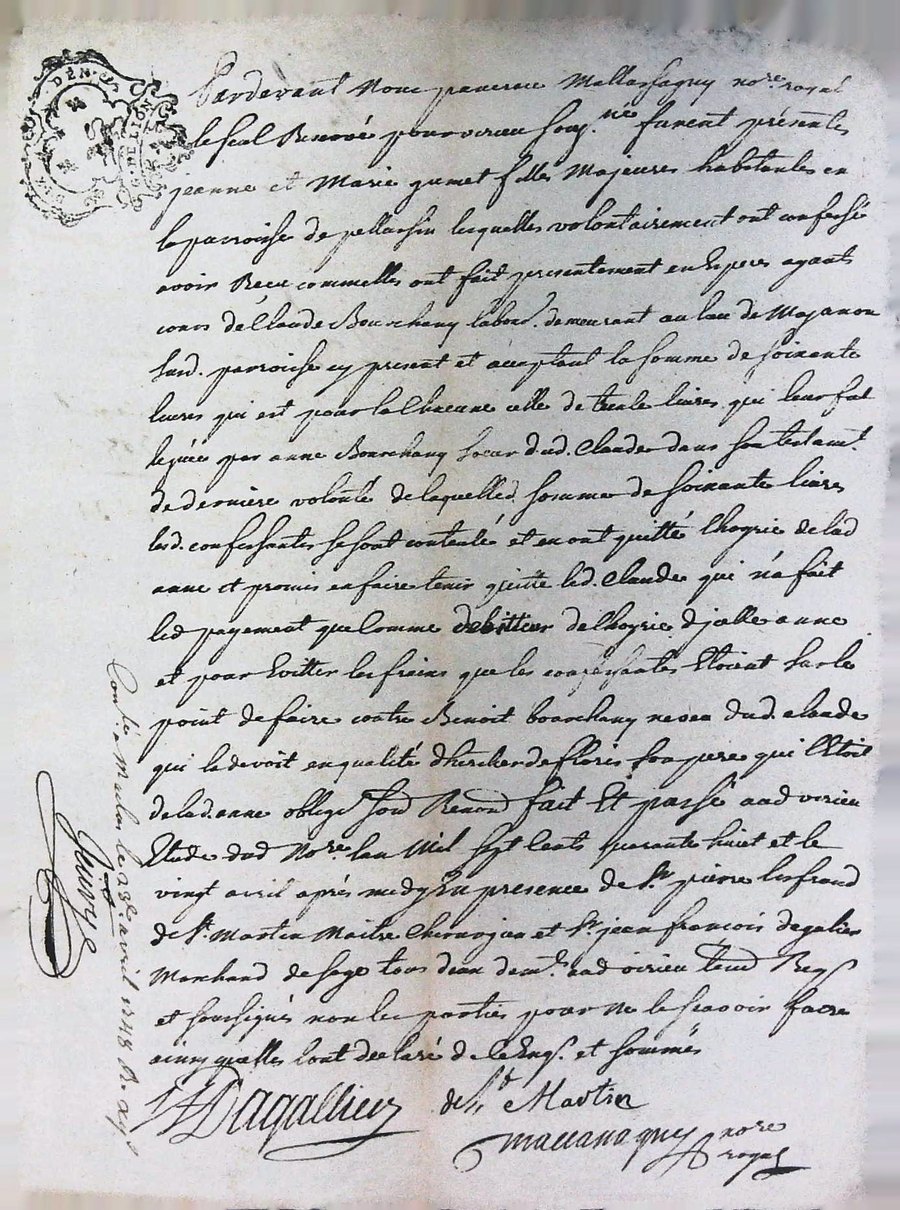 DEN
G. DE LION
Pardevant Nous nore royal
le seal Renové pour virieu soug.né furent présentes
jeanne et Marie gumet filles Majeures habitantes en
la parroisse de pellassin lesquelles volontairement ont confessé
avoir Receu commelles ont fait presentement en Especes ayants
cours de Claude Bourchany labour. demeurant au lieu de Mazanon
susd. parroisse cy present et acceptant la somme de soixante
livres qui est pour la Chacune celle de trente livres qui leur fut
leguée par anne Bourchany soeur dud. Claude dans son testamt.
de derniere volonté de laquelled. somme de soixante livres
lesd. confessantes se sont contenté et en ont quitté l'hoyrie de lad
anne et promis en faire tenir quitte led. Claude qui n'a fait
led payement que comme debitteur de l'hoyrie d'jcelle anne
et pour Evitter les fraix que les confessantes Etoient sur le
point de faire contre Benoit bourchany neveu dud. claude
qui la devoit en qualité d'heritier de floris son pere qui l'Etoit
de lad. anne oblige Soud Renond fait Et passé aud virieu
Etude dud Nore. lan Mil sept cents quarante huit et le
vingt avril après medy En presence de Sr. pierre lesfrand
de St. Martin Maitre Chirurgien et Sr. jean françois dagalier
Marchand de Sage tous deux demt. aud virieu tem. Req.
et soussignés non les parties pour ne le scavoir faire
ainsy quelles lont declaré de ce Enq. et sommés
JF Dagallier de St Martin
nore
royal
Conlé a le 23e avril 1748 R.